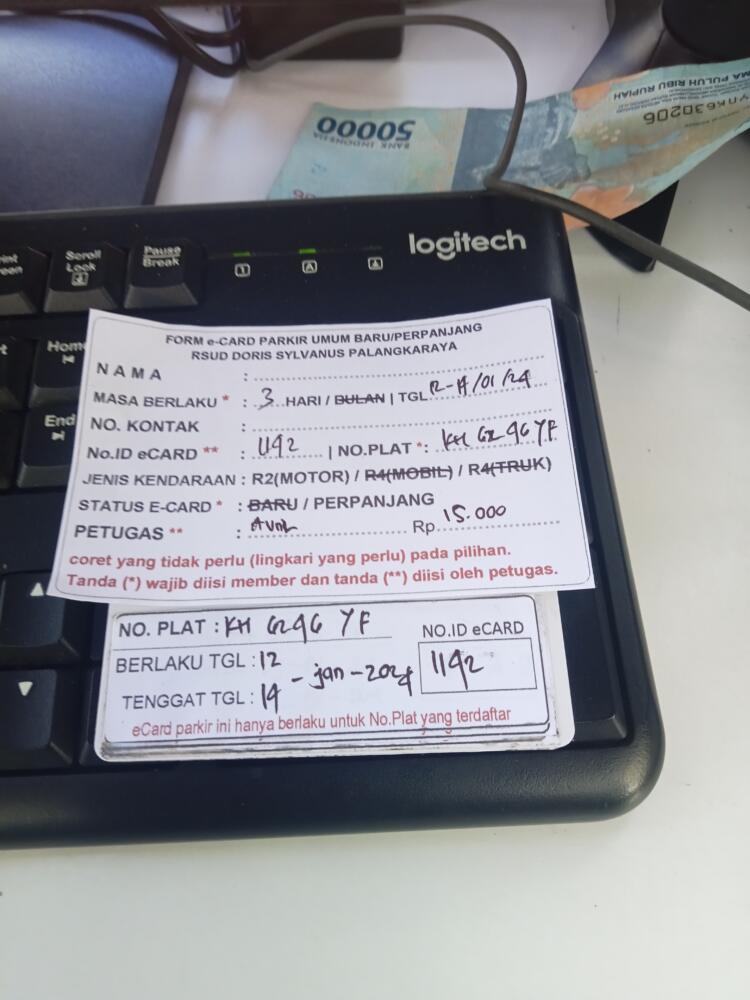 MA PULUH RIBU RUPIAH
630206
50000
BANK INDONESIA
logitech
Scroll
Lock
Pause
Break
1
A
Home
End
FORM e-CARD PARKIR UMUM BARU/PERPANJANG
RSUD DORIS SYLVANUS PALANGKARAYA
NAMA :
MASA BERLAKU * : 3 HARI / BULAN | TGL 12-14/01/24
NO. KONTAK :
No.ID eCARD ** : 1192 | NO.PLAT *: KH 6296 YF
JENIS KENDARAAN : R2(MOTOR) / R4(MOBIL) / R4(TRUK)
STATUS E-CARD * : BARU / PERPANJANG
PETUGAS ** : Rp. 15.000
coret yang tidak perlu (lingkari yang perlu) pada pilihan.
Tanda (*) wajib diisi member dan tanda (**) diisi oleh petugas.
NO. PLAT : KH 6296 YF
NO.ID eCARD
1192
BERLAKU TGL : 12
- jan - 2024
TENGGAT TGL : 14
eCard parkir ini hanya berlaku untuk No.Plat yang terdaftar